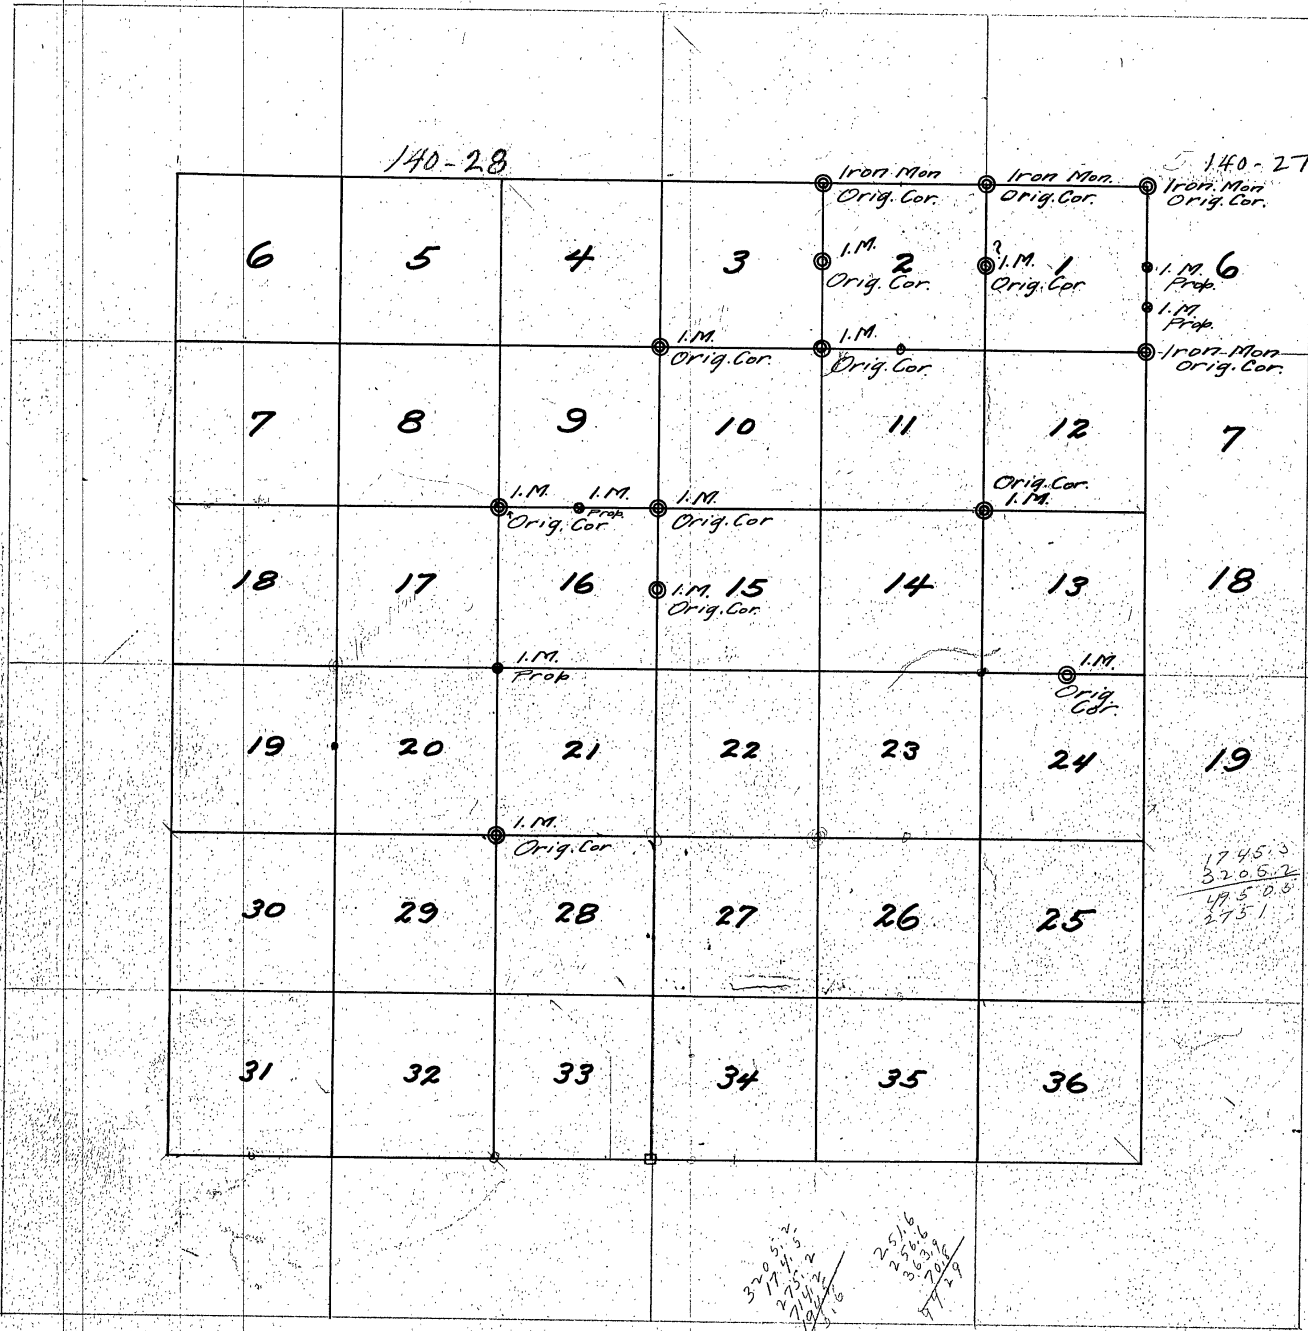 140-28
140-27
Iron Mon
Orig. Cor.
Iron Mon.
Orig. Cor.
Iron Mon
Orig. Cor.
6
5
4
3
I.M.
2
Orig. Cor.
?
I.M.
1
Orig. Cor
I.M.
6
Prop.
I.M.
Prop.
I.M.
Orig. Cor.
I.M.
Orig. Cor.
Iron Mon
Orig. Cor.
7
8
9
10
11
12
7
I.M.
Orig. Cor
I.M.
Prop.
I.M.
Orig. Cor
Orig. Cor.
I.M.
18
17
16
I.M.
15
Orig. Cor.
14
13
18
I.M.
Prop
I.M.
Orig
Cor.
19
20
21
22
23
24
19
I.M.
Orig. Cor
1745.3
3205.2
30
29
28
27
26
25
2751
31
32
33
34
35
36
3205.2
1745
275.2
251.6
256.6
363.9